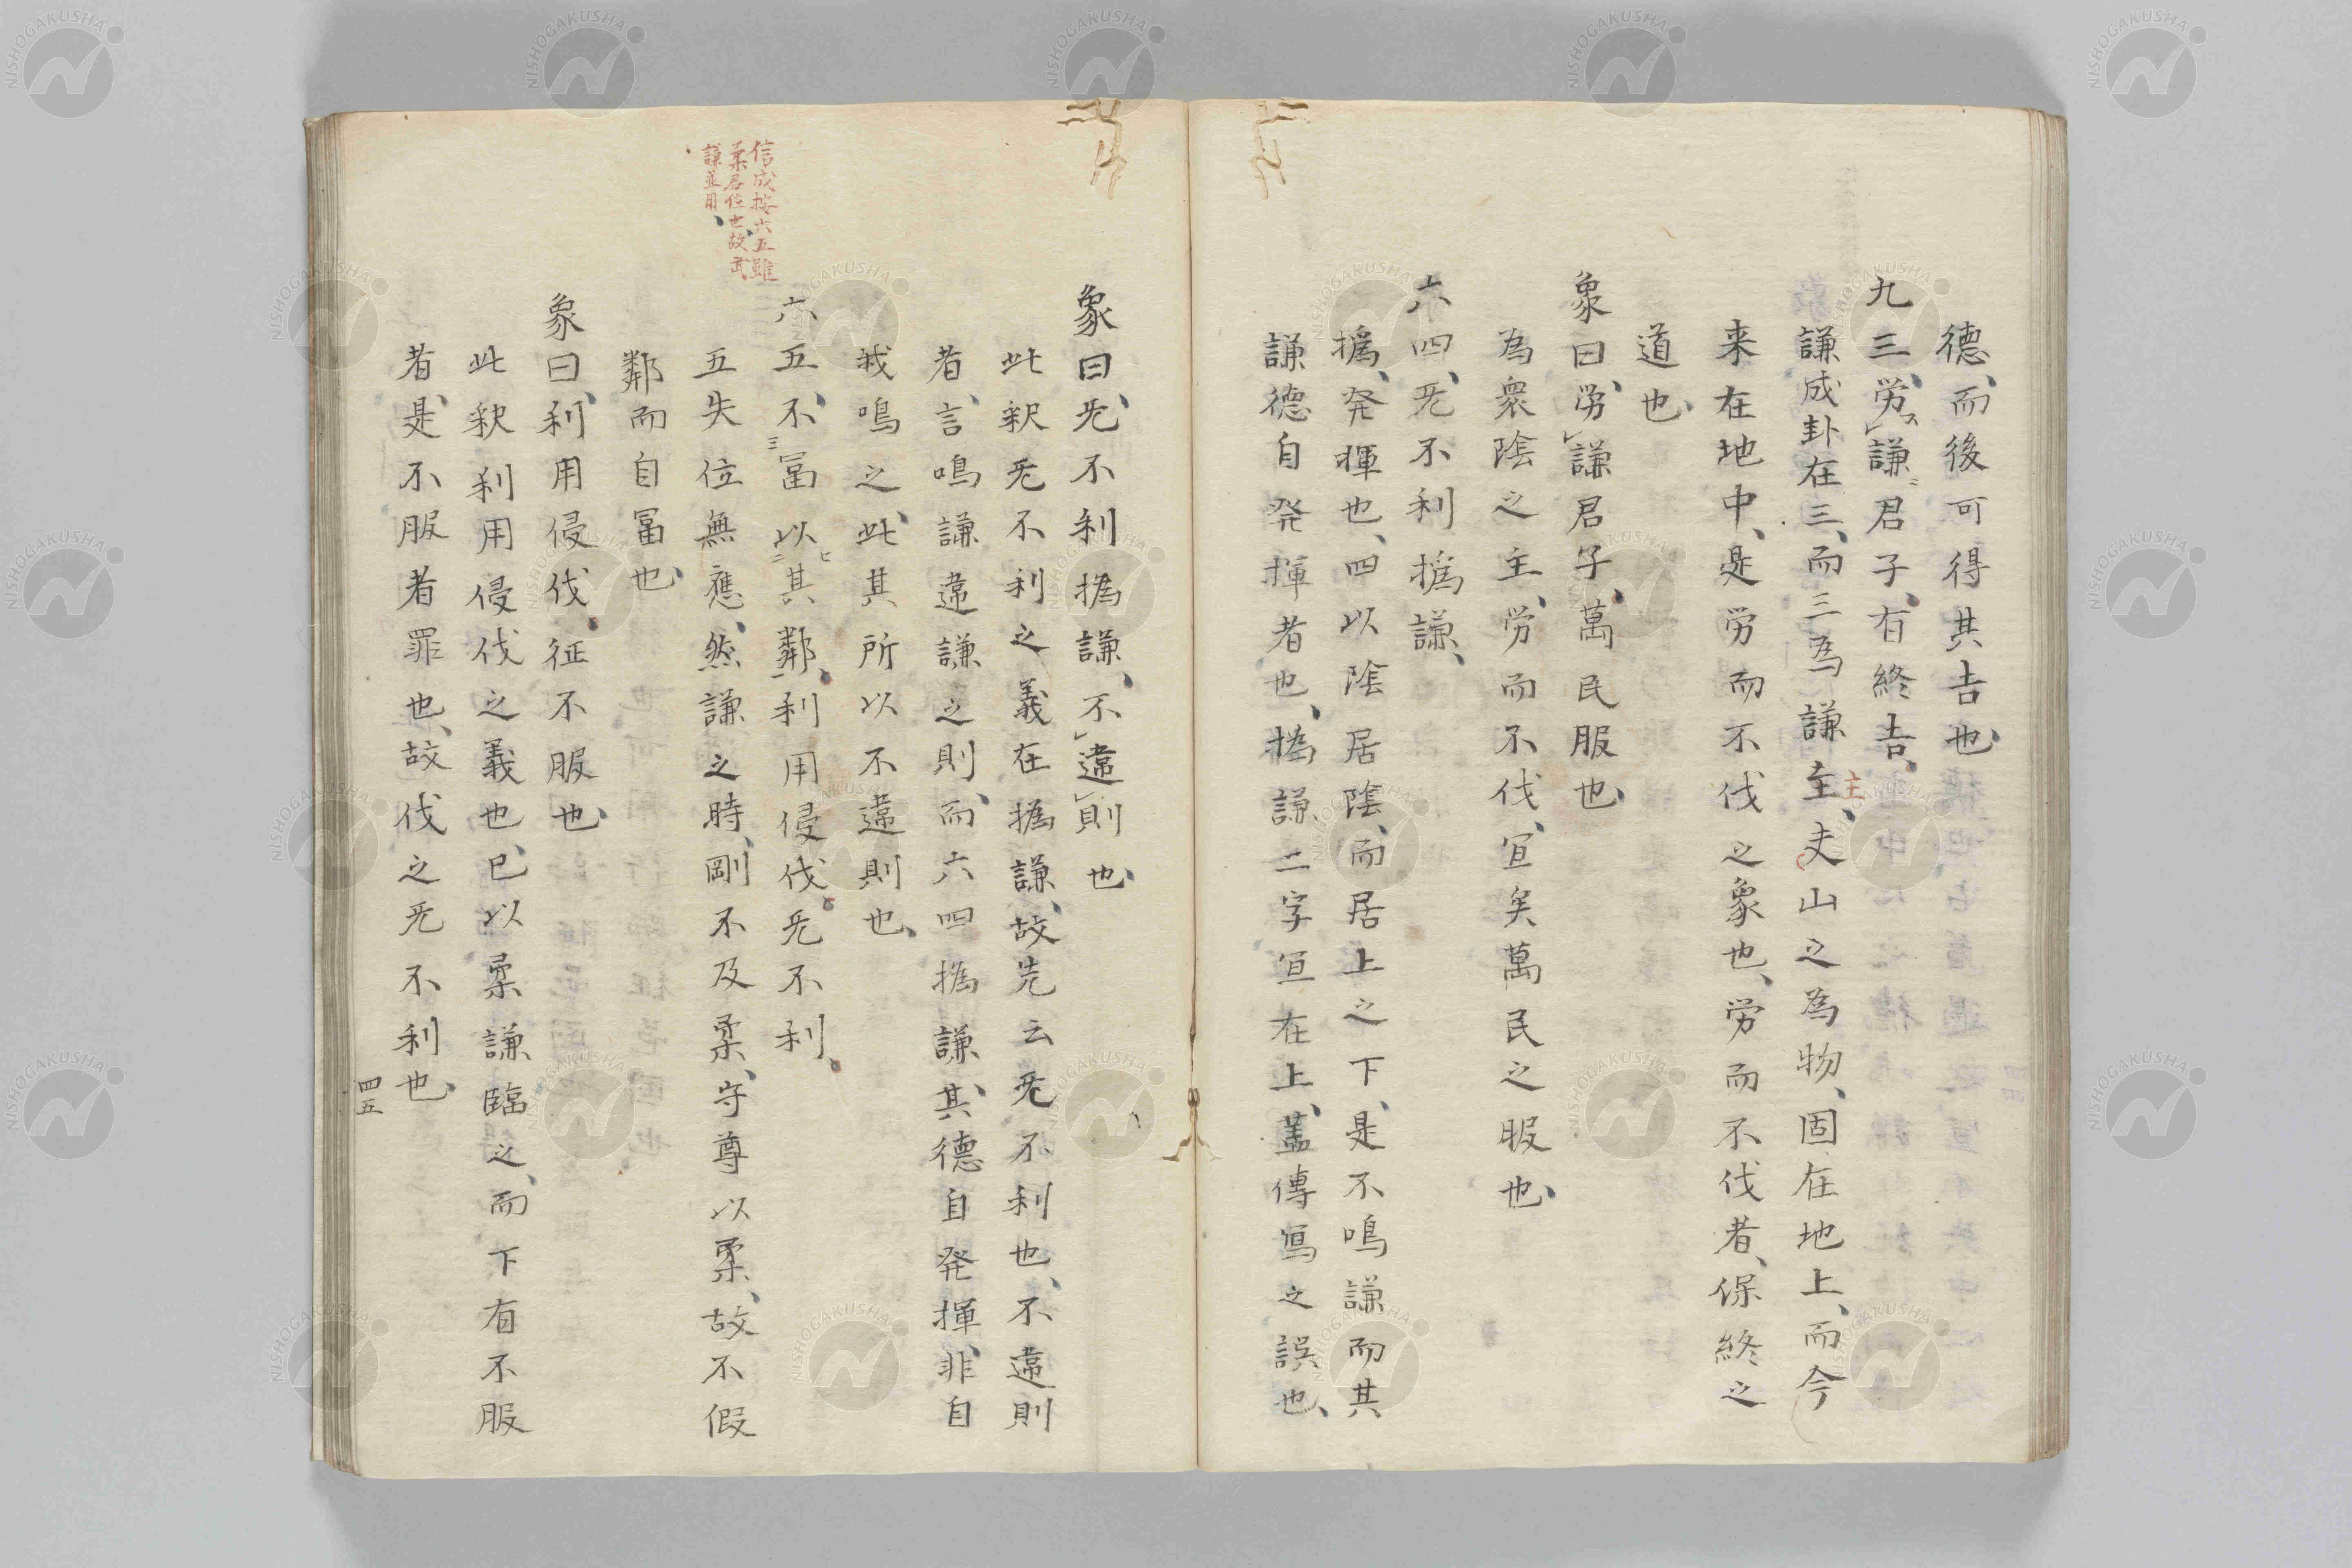 德、而後可得其吉也、
九三、労謙、君子、有終吉、
謙成卦在三、而三為謙主、夫山之為物、固在地上、而今
主
来在地中、是労而不伐之象也、労而不伐者、保終之
道也、
象曰、労謙君子、萬民服也、
為衆陰之主、労而不伐、宜矣萬民之服也、
六四、旡不利撝謙、
撝、発揮也、四以陰居陰、而居上之下、是不鳴謙而其
謙德自発揮者也、撝謙二字宜在上、蓋傳寫之誤也、
象曰、旡不利撝謙、不違則也、
此釈旡不利之義在撝謙、故先云旡不利也、不違則
者、言鳴謙違謙之則、而六四撝謙、其德自発揮、非自
我鳴之、此其所以不違則也、
信成按六五雖
柔居位也、故武
謙並用、
六五、不冨以其鄰、利用侵伐、旡不利、
五失位無應、然謙之時、剛不及柔、守尊以柔、故不假
鄰而自冨也、
象曰、利用侵伐、征不服也、
此釈利用侵伐之義也、已以柔謙臨之、而下有不服
者、是不服者罪也、故伐之旡不利也、
四五
NISHOGAKUSHA